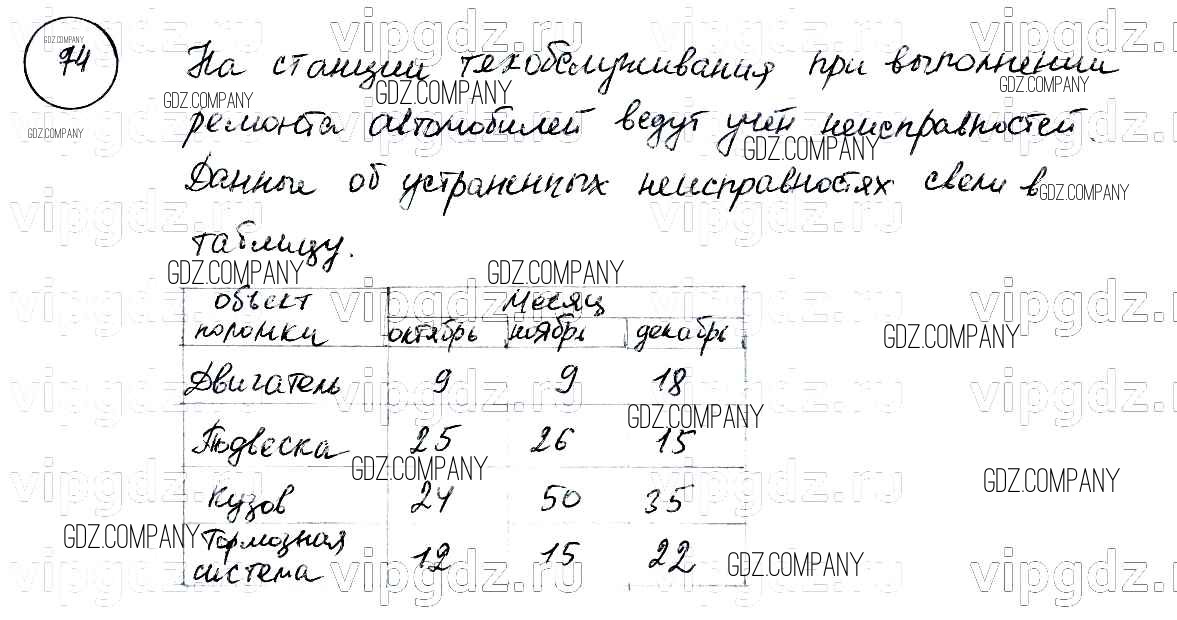 74
На станции техобслуживания при выполнении
ремонта автомобилей ведут учёт неисправностей.
Данные об устраненных неисправностях свели в
таблицу.
объект поломки | Месяц
октябрь | ноябрь | декабрь
Двигатель 9 9 18
Подвеска 25 26 15
Кузов 24 50 35
Тормозная
система 12 15 22
GDZ.COMPANY
vipgdz.ru